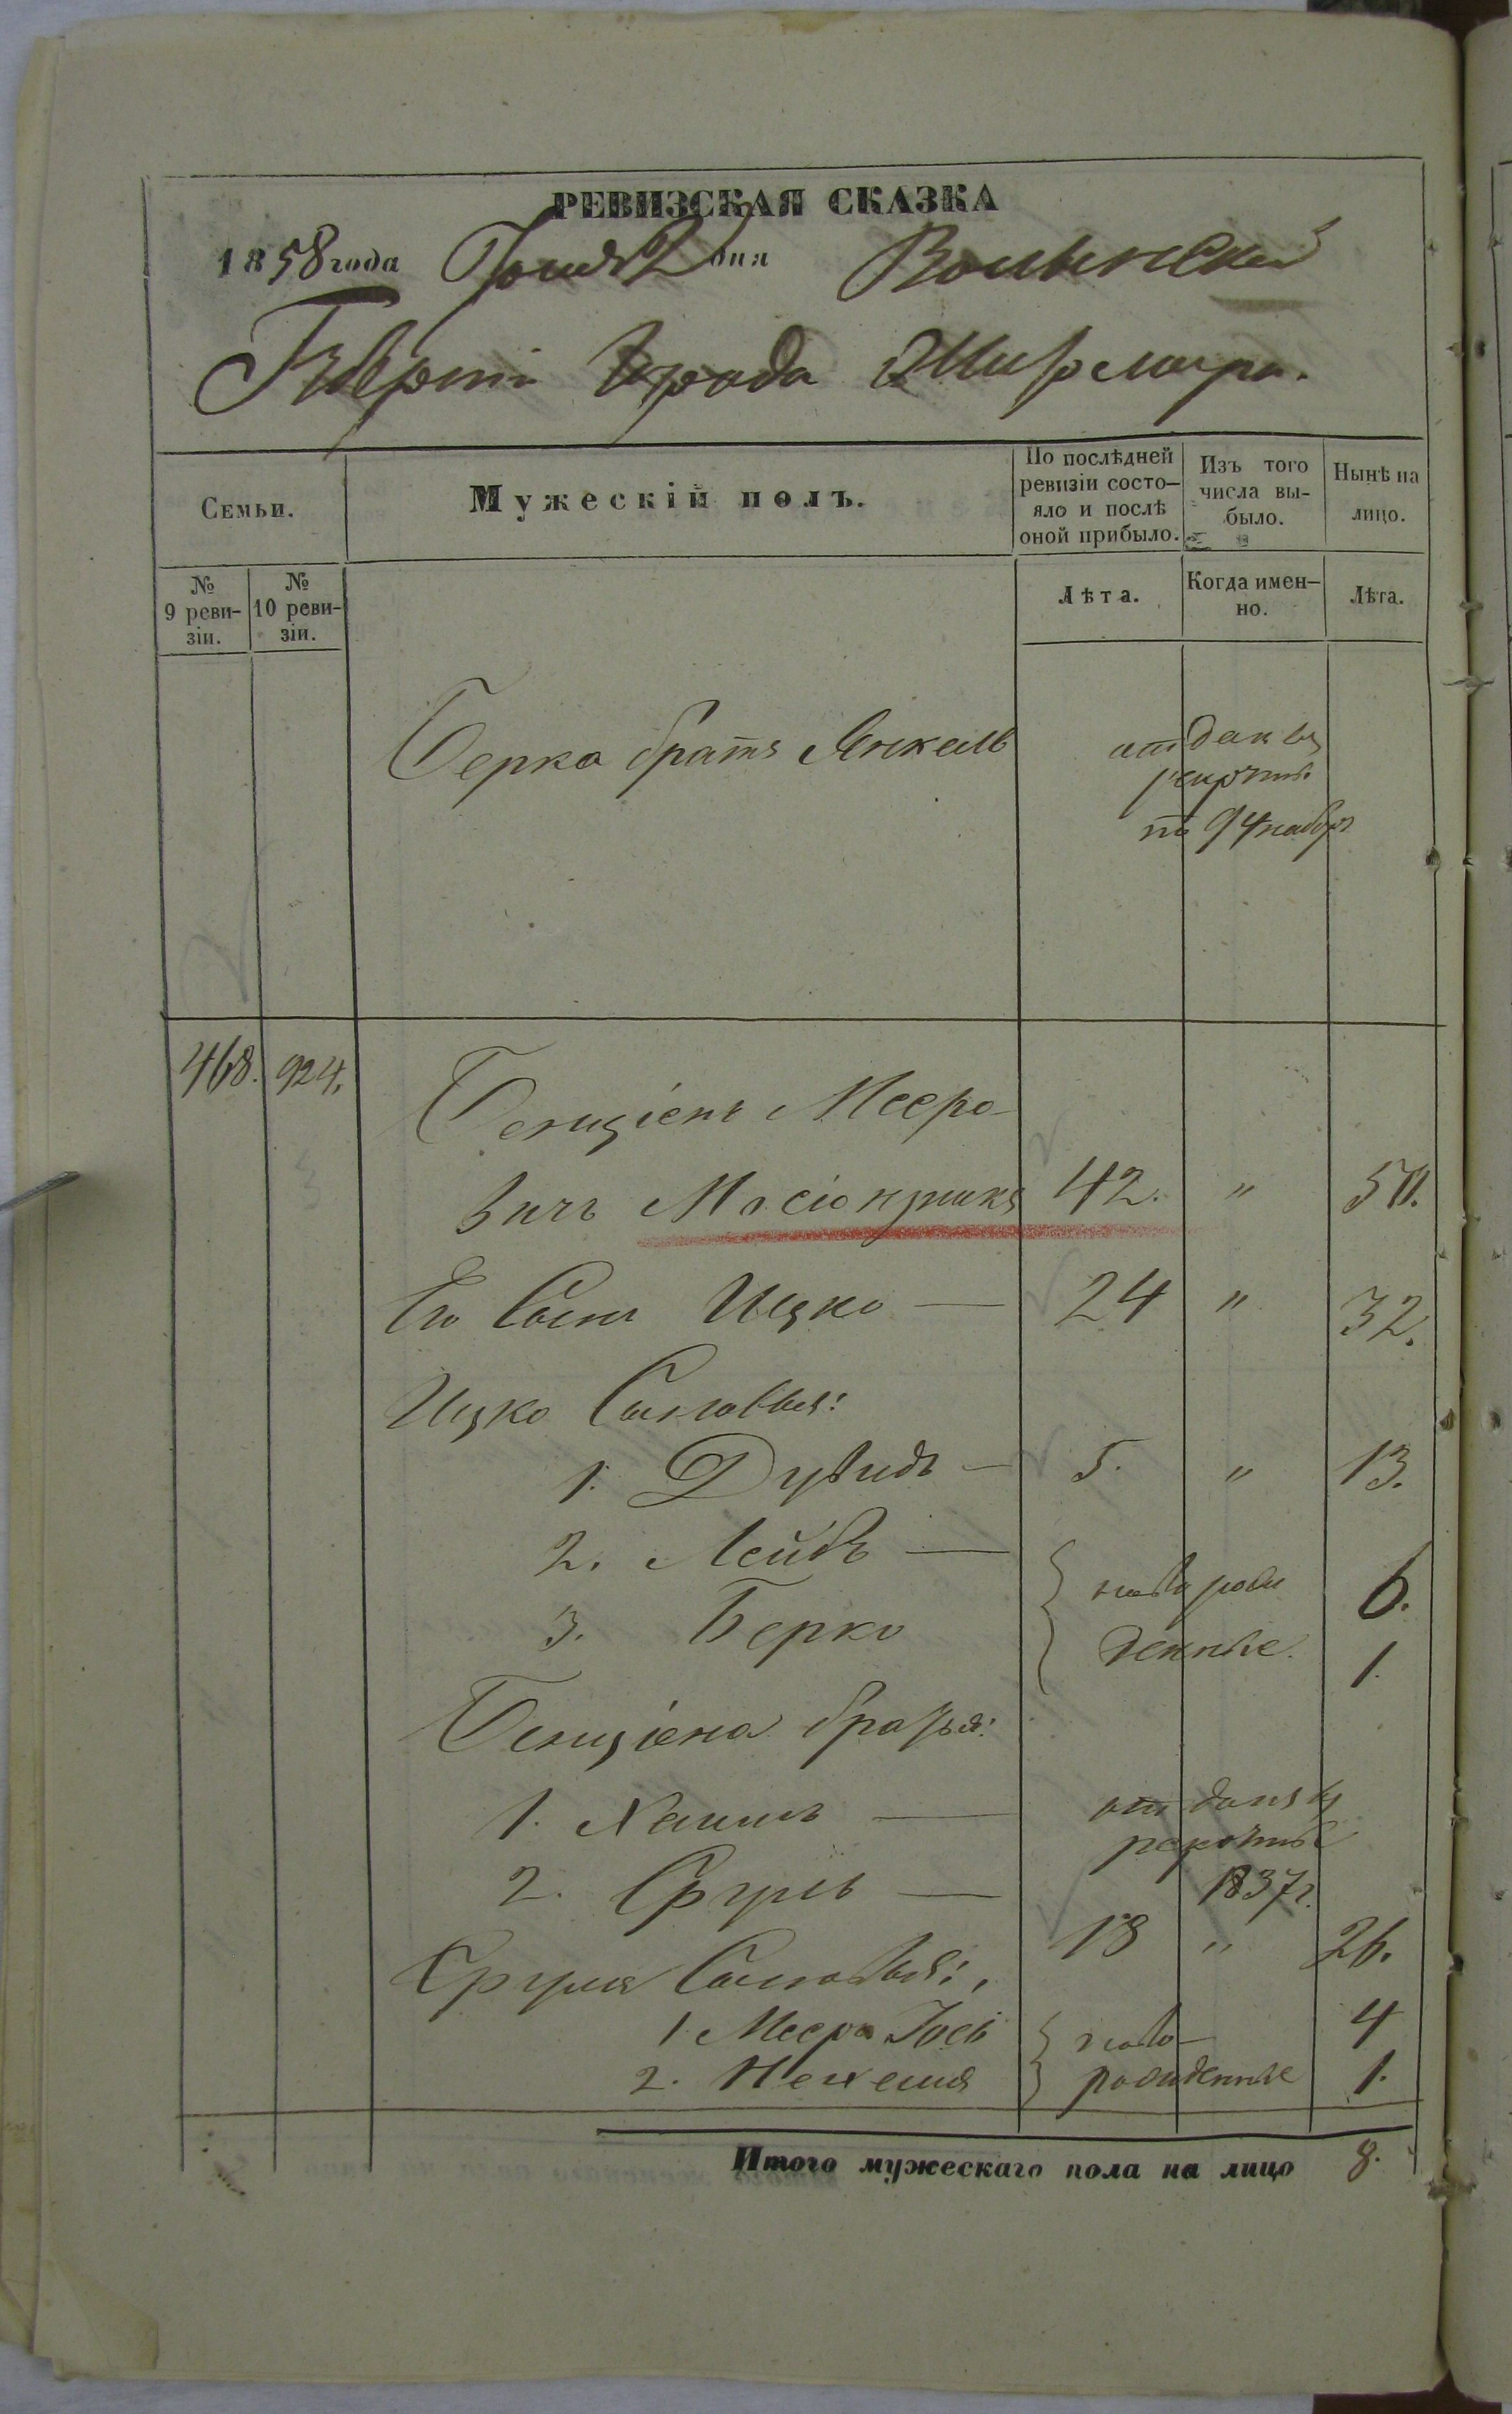 РЕВИЗСКАЯ СКАЗКА
1858 года Іюня 2 дня Волынской
Губерніи города Житомира.
Семьи.
Мужескій полъ.
По послѣдней ревизіи состо-
яло и послѣ
оной прибыло.
Изъ того
числа вы-
было.
Нынѣ на
лицо.
№
9 реви-
зіи.
№
10 реви-
зіи.
Лѣта.
Когда имен-
но.
Лѣта.
Берка братъ Янкель
отданъ въ
рекруты
по 94 набор
468. 924.
Бенціенъ Мееро-
вичъ 42. " 50.
Его Сынъ Ицко — 24 " 32.
Ицко Сыновья:
1. Дувидъ — 5. " 13.
2. Лейбъ — новорож 6.
3. Берко денные. 1.
Бенціена братья:
1. Хаимъ — отданъ въ
рекруты
1837г.
2. Сруль — 18 " 26.
Сруля Сыновья:
1. Мееръ Іось ново- 4
2. Нехемія рожденные 1.
Итого мужескаго пола на лицо 8.